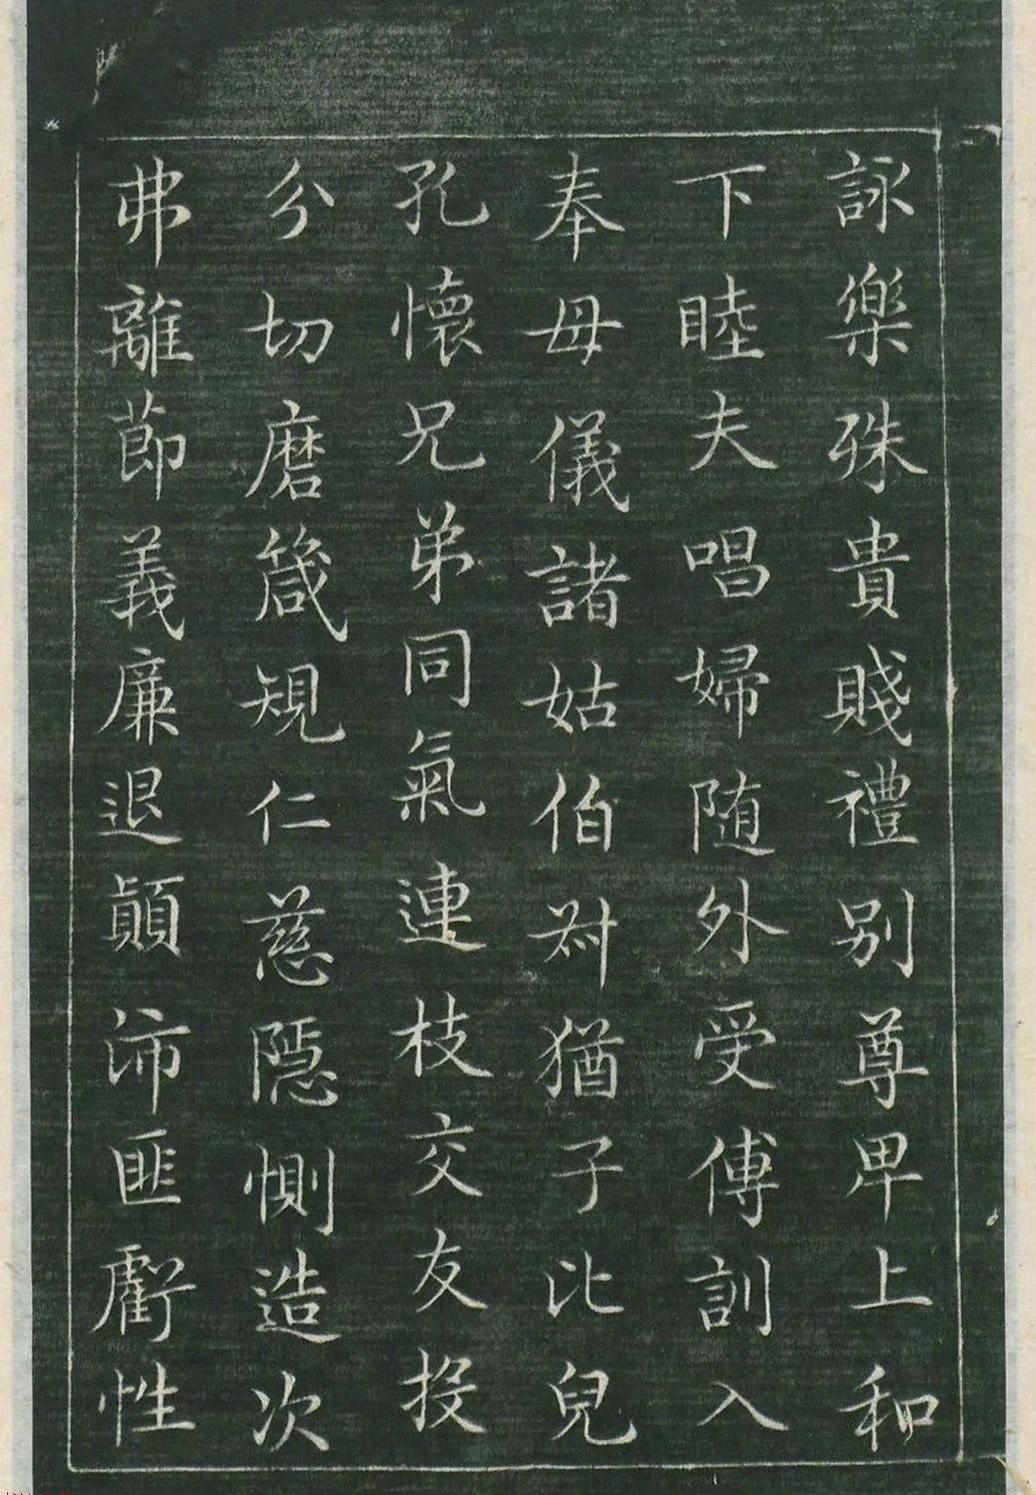 詠樂殊貴賤禮別尊卑上和
下睦夫唱婦随外受傅訓入
奉母儀諸姑伯叔猶子比兒
孔懷兄弟同氣連枝交友投
分切磨箴規仁慈隱惻造次
弗離節義廉退顛沛匪虧性